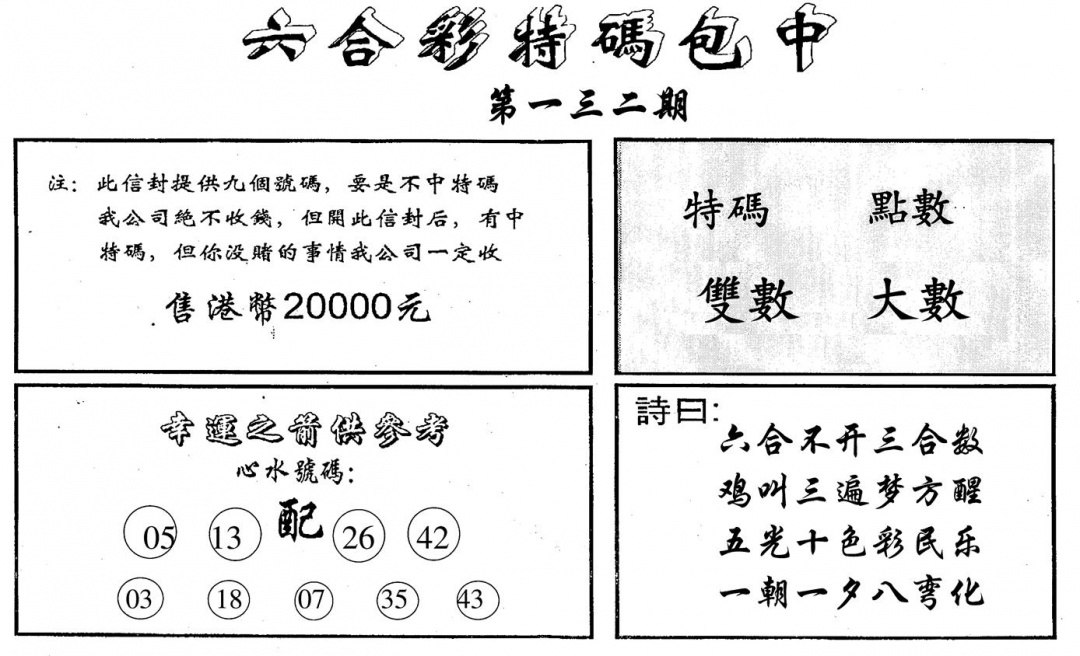 六合彩特碼包中
第一三二期
注：此信封提供九個號碼，要是不中特碼
我公司絕不收錢，但開此信封后，有中
特碼，但你没賭的事情我公司一定收
售港幣20000元
特碼 點數
雙數 大數
幸運之箭供參考
心水號碼：
05 13 配 26 42
03 18 07 35 43
詩曰：
六合不开三合数
鸡叫三遍梦方醒
五光十色彩民乐
一朝一夕八弯化